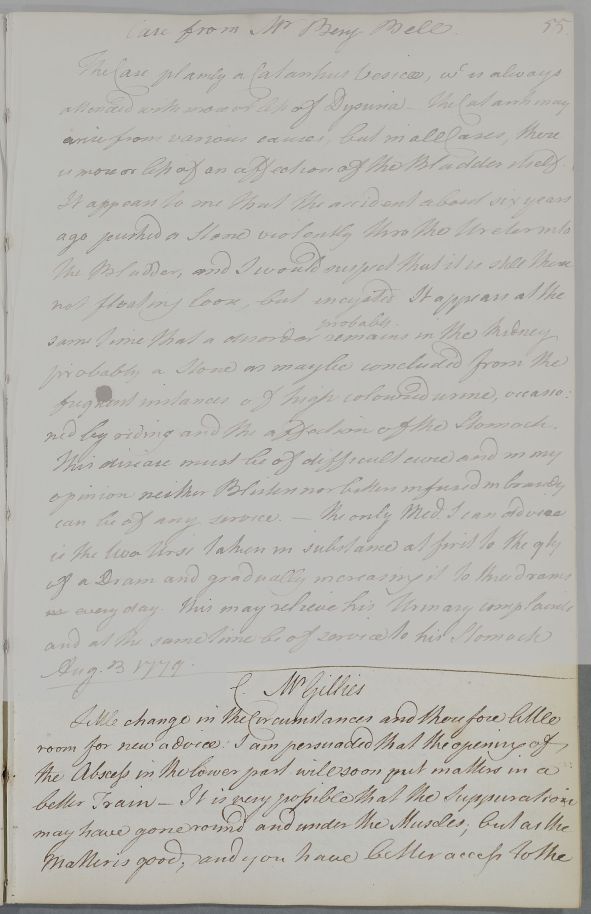 Case from Mr Benj Bell. 55
The Case plainly a Catarrhus Vesicæ, wc is always
attended with more or less of Dysuria – The Catarrh may
arise from various causes, but in all Cases, there
is more or less of an affection of the Bladder itself.
It appears to me that the accident about six years
ago pushed a Stone violently thro the Ureter into
the Bladder, and I would suspect that it is still there
not floating loose, but encysted. It appears at the
same time that a disorder probably remains in the Kidney
probably a Stone as maybe concluded from the
frequent instances of high coloured urine, occasio:
ned by riding and the affection of the Stomach.
This disease must be of difficult cure and in my
opinion neither Blisters nor bitters infused in brandy
can be of any service. – The only Med. I can advise
is the Uva Ursi taken in substance at first to the qty
of a Dram and gradually increasing it to three drams
every day. This may relieve his Urinary complaints
and at the same time be of service to his Stomach
Aug. 13 1779.
C. Mr Gillies
Little change in the Circumstances and therefore little
room for new advice: I am persuaded that the opening of
the Abscess in the lower part will soon put matters in a
better Train – It is very possible that the Suppuration
may have gone round and under the Muscles, but as the
Matter is good, and you have better access to the